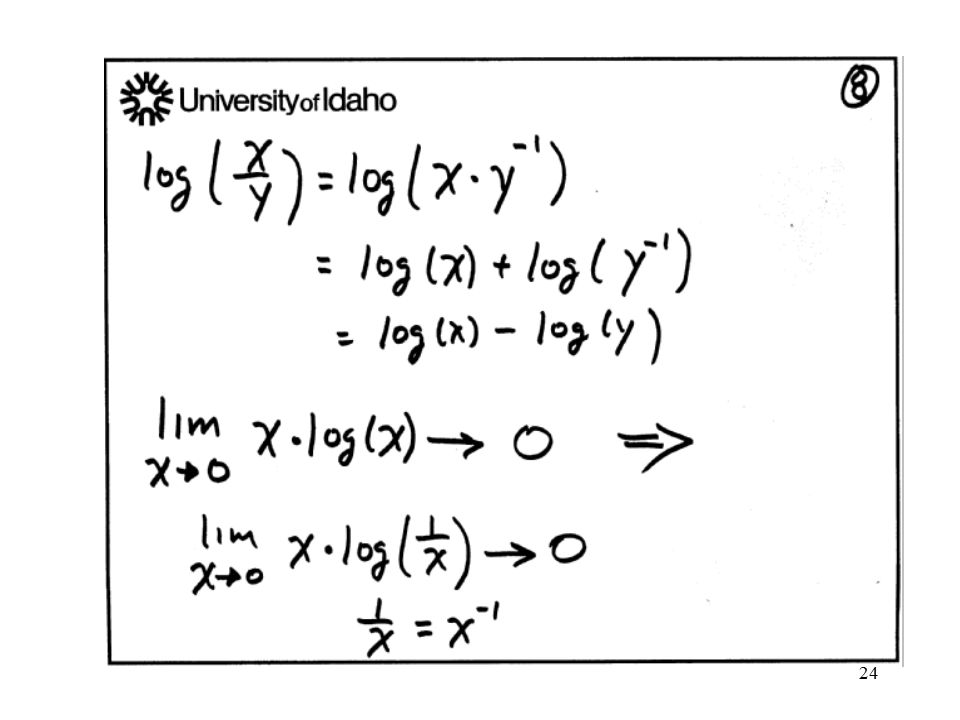 University of Idaho
⑧
log(x/y) = log(x·y⁻¹)
= log(x) + log(y⁻¹)
= log(x) − log(y)
lim x→0 x·log(x) → 0 ⇒
lim x→0 x·log(1/x) → 0
1/x = x⁻¹
24